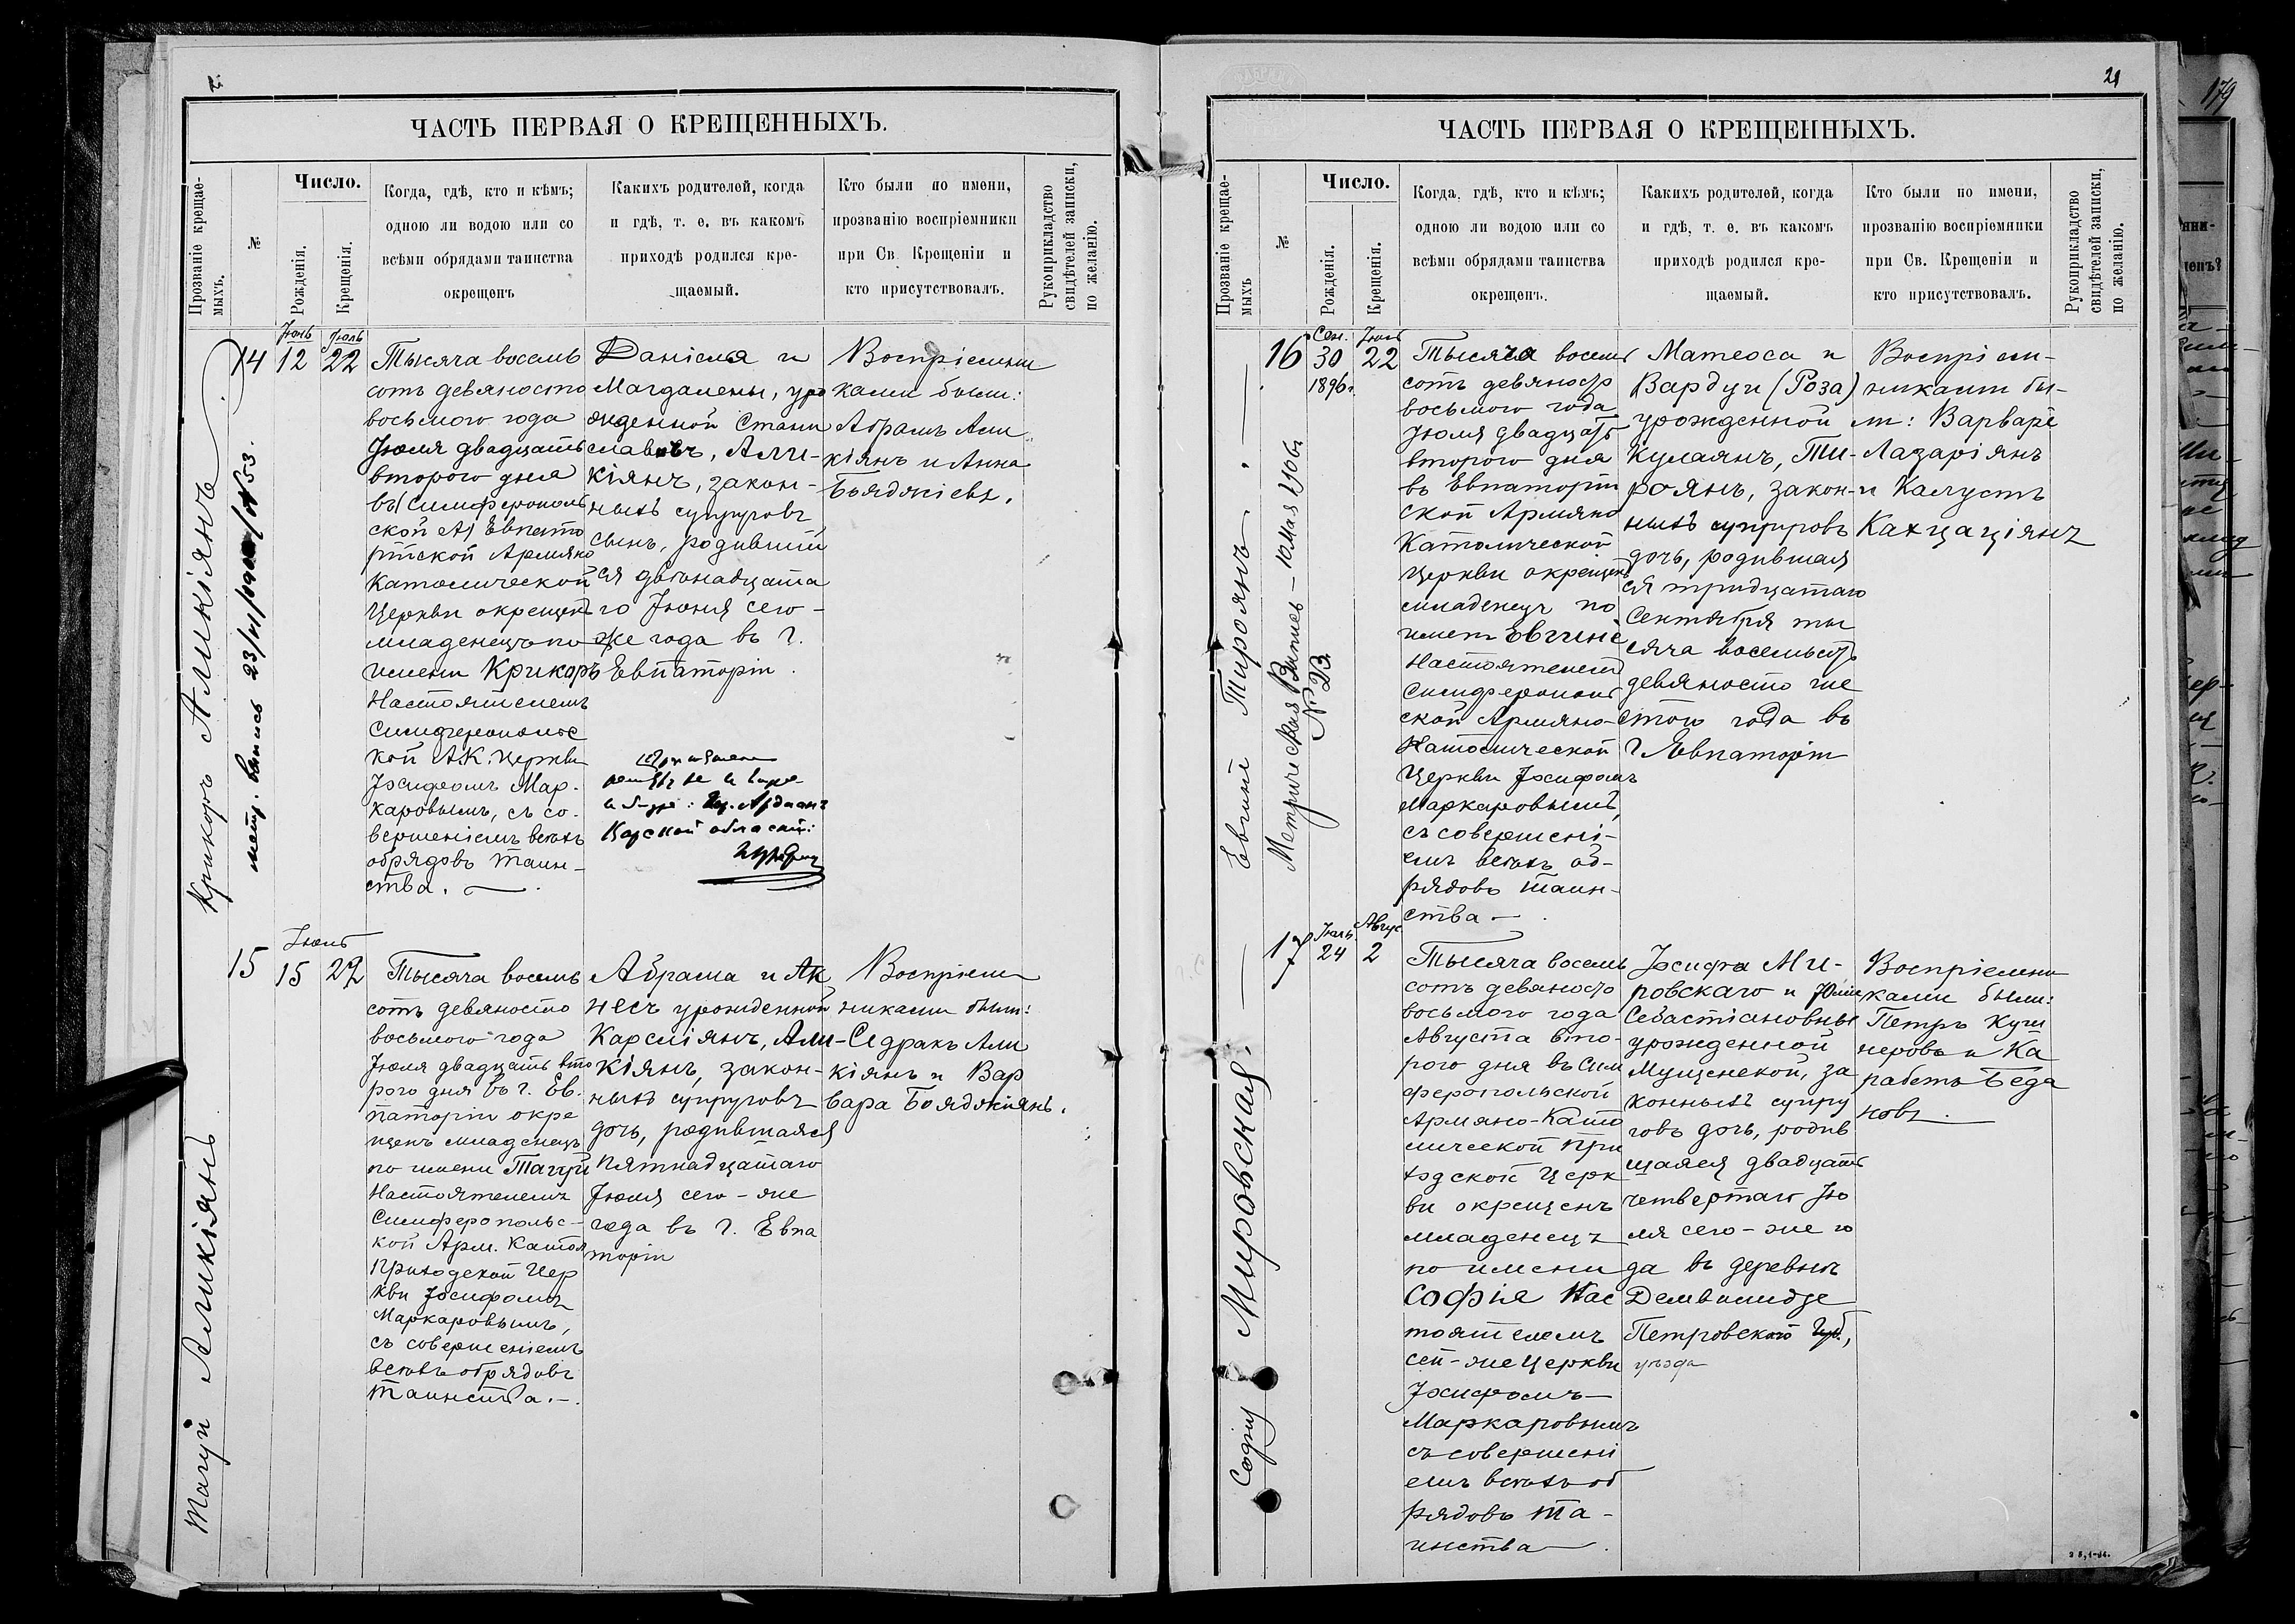 ЧАСТЬ ПЕРВАЯ О КРЕЩЕННЫХЪ.
Прозваніе крещае-
мыхъ.
№
Число.
Рожденія.
Крещенія.
Когда, гдѣ, кто и кѣмъ;
одною ли водою или со
всѣми обрядами таинства
окрещенъ
Какихъ родителей, когда
и гдѣ, т. е. въ какомъ
приходѣ родился кре-
щаемый.
Кто были по имени,
прозванію воспріемники
при Св. Крещеніи и
кто присутствовалъ.
Рукоприкладство
свидѣтелей записки,
по желанію.
Крикоръ Аликіянъ
метр. выпись
№ 53.
14
Іюнь
12
Іюль
22
Тысяча восемь
сотъ девяносто
восьмого года
Іюля двадцать
второго дня
въ Симферополь
ской А Евпато
рійской Армяно
Католической
Церкви окрещенъ
младенецъ по
имени Крикоръ
Настоятелемъ
Симферопольс
кой А.К. Церкви
Іосифомъ Мар-
каровымъ, съ со-
вершеніемъ всѣхъ
обрядовъ таин-
ства.
Даніела и
Магдалены, уро
жденной Стани
славовъ, Али-
кіянъ, закон-
ныхъ супруговъ
сынъ, родивший
ся двѣнадцата
го Іюня сего-
же года въ г.
Евпаторіи.
Карской области
Воспріемни
ками были:
Абрамъ Али
кіянъ и Анна
Бояджіевъ.
Тагуи Аликіянъ
15
Іюль
15
22
Тысяча восемь
сотъ девяносто
восьмого года
Іюля двадцать вто
рого дня въ г. Ев.
паторіи окре
щенъ младенецъ
по имени Тагуи
Настоятелемъ
Симферопольс-
кой Арм. Катол
Приходской Цер
кви Іосифомъ
Маркаровымъ,
съ совершеніемъ
всѣхъ обрядовъ
таинства.-.
Абрама и Ак
несъ урожденной
Карсліянъ, Али-
кіянъ, закон-
ныхъ супруговъ
дочь, родившаяся
пятнадцатаго
Іюля сего-же
года въ г. Евпа
торіи
Воспріем
никами были:
Седракъ Али
кіянъ и Вар
вара Бояджіянъ.
21
ЧАСТЬ ПЕРВАЯ О КРЕЩЕННЫХЪ.
Прозваніе крещае-
мыхъ
№
Число.
Рожденія.
Крещенія.
Когда, гдѣ, кто и кѣмъ;
одною ли водою или со
всѣми обрядами таинства
окрещенъ.
Какихъ родителей, когда
и гдѣ, т. е. въ какомъ
приходѣ родился кре-
щаемый.
Кто были по имени,
прозванію воспріемники
при Св. Крещеніи и
кто присутствовалъ.
Рукоприкладство
свидѣтелей записки,
по желанію.
Евгинѣ Тироянъ.
Метрическая Выпись - 10 Мая 1906г
№ 23
16
Сен.
30
1896г.
Іюль
22
Тысяча восемь
сотъ девяносто
восьмого года
Іюля двадцать
второго дня
въ Евпаторій
ской Армяно
Католической
Церкви окрещенъ
младенецъ по
имени Евгинѣ
Настоятелемъ
Симферополь
ской Армяно-
Католической
Церкви Іосифомъ
Маркаровымъ,
съ совершені-
емъ всѣхъ об-
рядовъ таин-
ства-.
Матеоса и
Вардуи (Роза)
урожденной
Кулаянъ, Ти-
роянъ, закон-
ныхъ супруговъ
дочь, родившая
ся тридцатаго
Сентября ты
сяча восемьсотъ
девяносто ше
стого года въ
г. Евпаторіи
Воспріем-
никами бы-
ли: Варваре
Лазаріянъ
и Калустъ
Кахцаціянъ
Софія Мировская.
17
Іюль
24
Авгус
2
Тысяча восемь
сотъ девяносто
восьмого года
Августа вто-
рого дня въ Сим
феропольской
Армяно-Като
лической При
ходской Церк
ви окрещенъ
младенецъ
по имени
Софія Нас
тоятелемъ
сей-же Церкви
Іосифомъ
Маркаровымъ
съ совершені
емъ всѣхъ об
рядовъ та-
инства.
Іосифа Ми-
ровскаго и Юліи
Себастіановны
урожденной
Мущенской, за
конныхъ супру
говъ дочь, родив
шаяся двадцать
четвертаго Ію
ля сего-же го
да въ деревнѣ
Петровскаго
уѣзда
Воспріемни
ками были:
Петръ Куш
неровъ и Ка
рабетъ Беда
новъ.
179